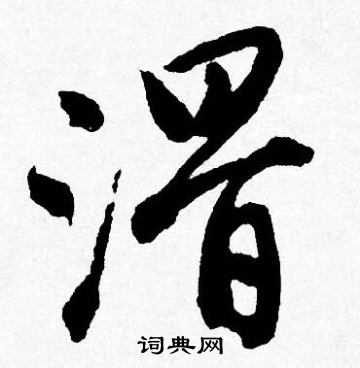 渭
词典网